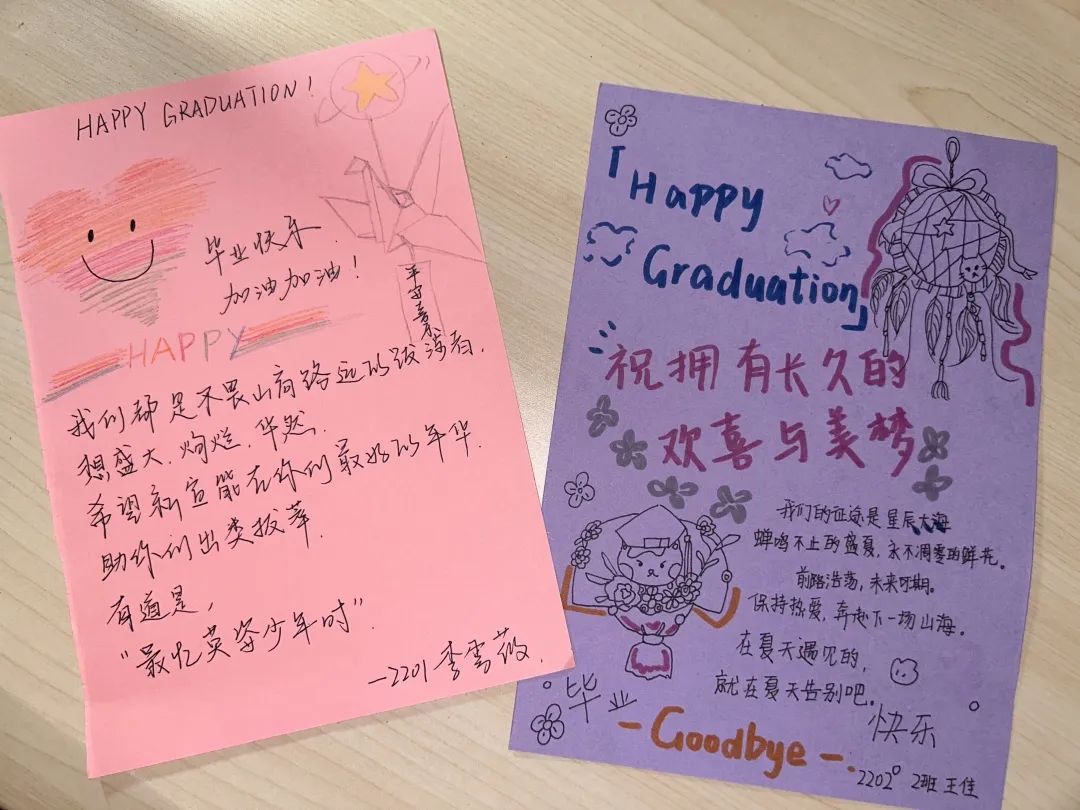 HAPPY GRADUATION!
毕业快乐
加油加油!
HAPPY
我们都是不畏山高路远的跋涉者,
想盛大、灼烂、华然.
希望新宣能在你们最好的年华.
助你们出类拔萃.
有道是,
"最忆英姿少年时".
—2201 李雪薇.
「Happy
Graduation」
祝拥有长久的
欢喜与美梦
我们的征途是星辰大海
蝉鸣不止的盛夏,永不凋零的鲜花。
前路浩荡,未来可期。
保持热爱,奔赴下一场山海。
在夏天遇见的,
就在夏天告别吧。
毕业
快乐
- Goodbye -.
2202° 2班 王佳